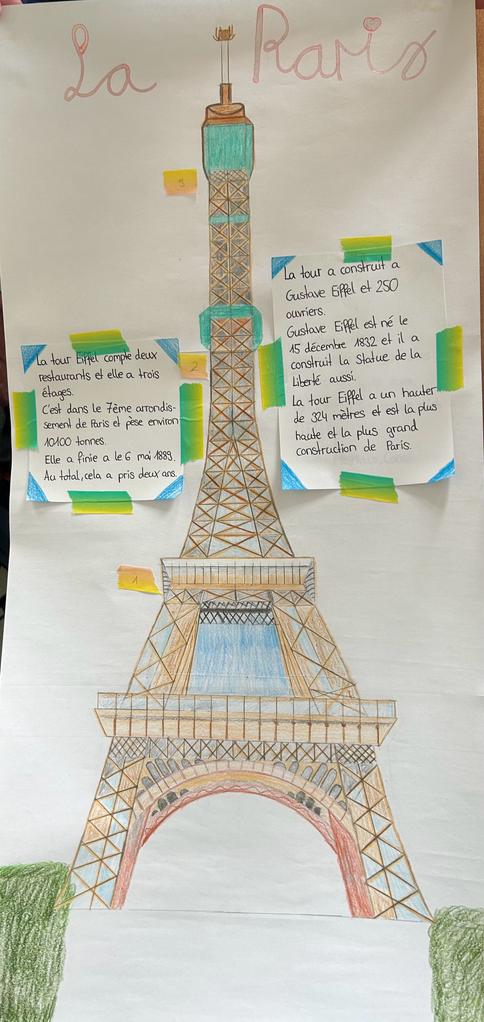 La Paris
3
La tour a construit a
Gustave Eiffel et 250
ouvriers.
Gustave Eiffel est né le
15 décembre 1832 et il a
construit la Statue de la
Liberté aussi.
La tour Eiffel a un hauter
de 324 mètres et est la plus
haute et la plus grand
construction de Paris.
2
La tour Eiffel compte deux
restaurants et elle a trois
étages.
C'est dans le 7ème arrondis-
sement de Paris et pèse environ
10100 tonnes.
Elle a finie a le 6 mai 1889.
Au total, cela a pris deux ans.
1